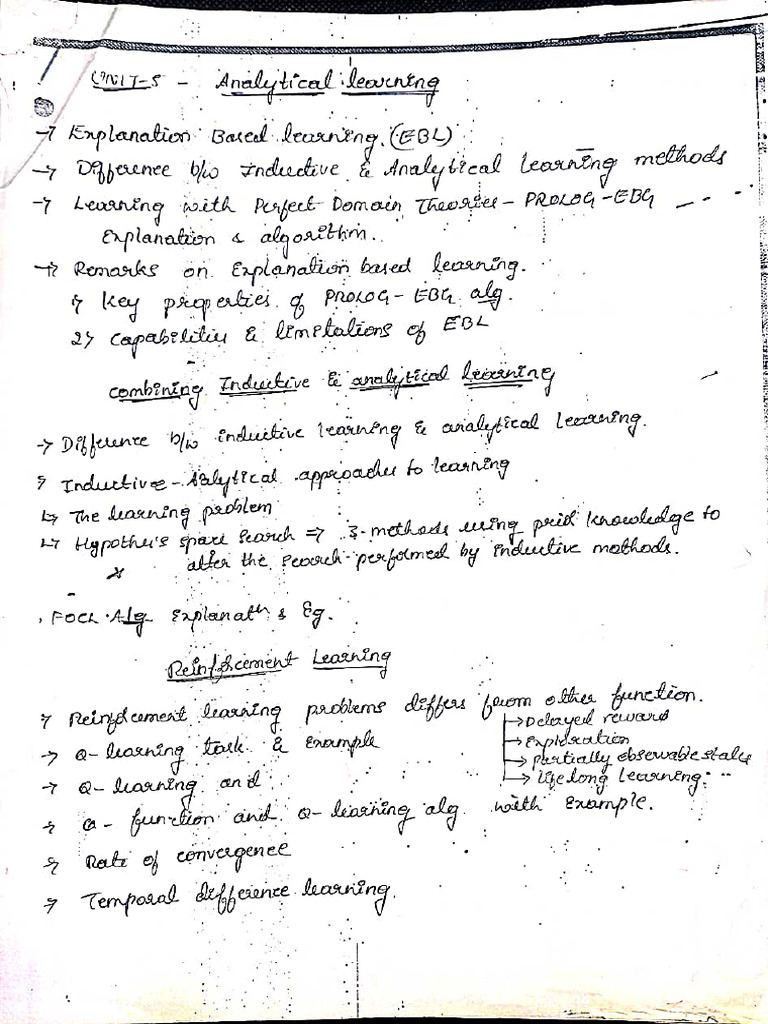 UNIT-5 - Analytical learning
→ Explanation Based learning. (EBL)
→ Difference b/w Inductive & Analytical Learning methods
→ Learning with Perfect Domain Theories - PROLOG-EBG
Explanation & algorithm.
→ Remarks on Explanation based learning.
1> Key properties of PROLOG-EBG alg.
2> Capabilities & limitations of EBL
Combining Inductive & analytical Learning
→ Difference b/w inductive learning & analytical learning.
→ Inductive-Analytical approaches to learning
↳ The learning problem
↳ Hypothesis space search ⇒ 3-methods using prior knowledge to
alter the search performed by inductive methods.
FOCL Alg Explanatn & Eg.
Reinforcement Learning
→ Reinforcement learning problems differs from other function.
→ Delayed reward
→ Exploration
→ partially observable states
→ life long learning.
→ Q-learning task & Example
→ Q-learning and
→ Q-function and Q-learning alg with Example.
→ Rate of convergence
→ Temporal difference learning.